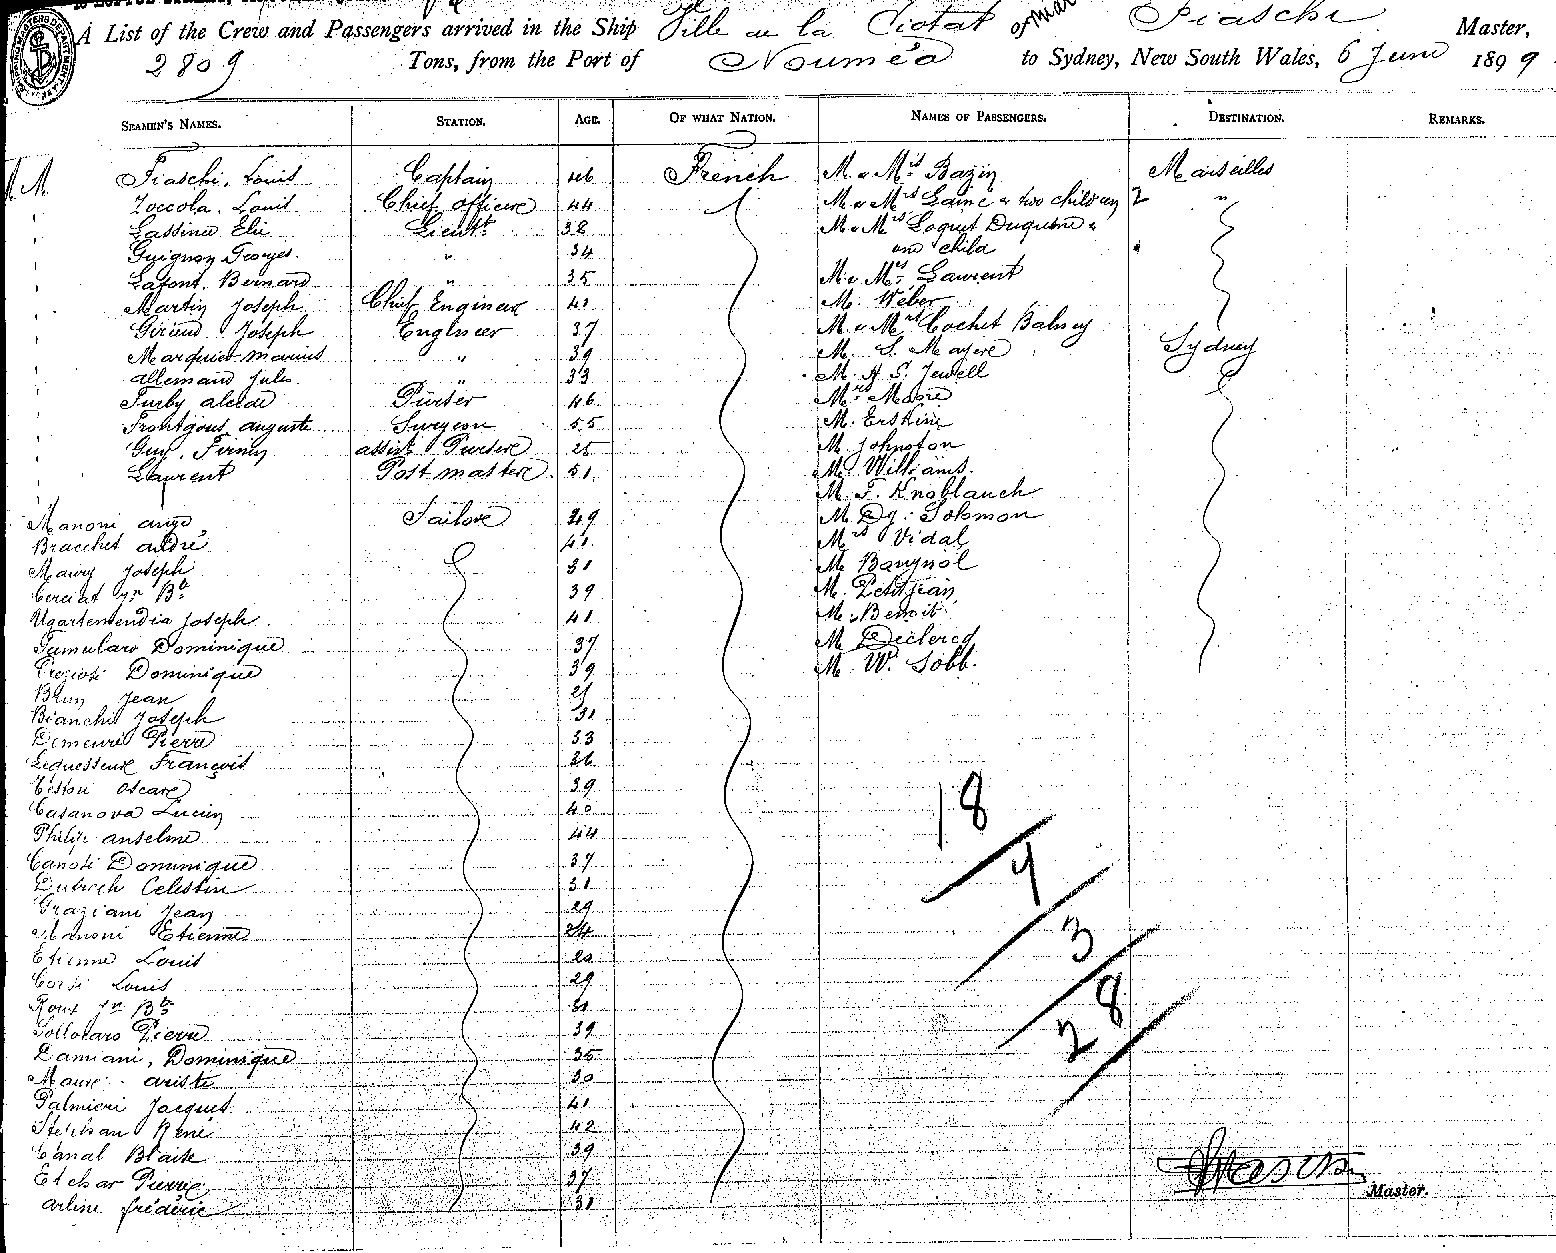 A List of the Crew and Passengers arrived in the Ship Ville de la Ciotat of Mar Fiaschi Master,
2809 Tons, from the Port of Nouméa to Sydney, New South Wales, 6 June 1899
SEAMEN'S NAMES. STATION. AGE. OF WHAT NATION. NAMES OF PASSENGERS. DESTINATION. REMARKS.
Fiaschi, Louis Captain 46 French M. & Mrs Bazin Marseilles
Zoccola, Louis Chief officer 44 M & Mrs Laine & two children 2 "
Elie Lieutt. 38 M & Mrs Loquet Duquesne &
Guignon Georges. " 34 one child
Lafont, Bernard " 35 M & Mrs Laurent
Martin Joseph Chief Engineer 41 M. Weber
Giraud Joseph Engineer 37 M & Mrs Cochet Balmey
Marquier Marius " 39 M. S. Mayere Sydney
Allemand Jules " 33 M. H. S. Jewell
Furby Alcide Purser 46 Mrs Moore
Auguste Surgeon 55 M. Erskine
Guy, Firmin assist Purser 25 M. Johnston
Laurent Post master 51 M. Williams.
M. F. Knoblauch
Manoni Ange Sailors 29 M Dg. Solomon
Bracchet André 41 Mrs Vidal
Maury Joseph 31 M Banynol
Jn Bte 39 M. Petitjean
Ugartemendia Joseph. 41 M. Benoit
Tamularo Dominique 37 M Declercq
Dominique 39 M W. Sobb.
Blun Jean
Bianchi Joseph 31
Demeure Pierre 33
Lequesseux François 26
Teston Oscar 39
Casanova Lucien 40
Philip Anselme 44
Canosi Dominique 37
Dutrech Celestin 31
Graziani Jean 29
Manoni Etienne 24
Etienne Louis 20
Corsi Louis 29
Roux Jn Bte 31
Sollocaro Pierre 39
Damiani, Dominique 35
Maure Ariste 30
Palmieri Jacques 41
Stephan René 42
Canal Blaise 39
Etchar Pierre 37
Arline Fréderic 31
18
4
3
28
Fiaschi
Master.